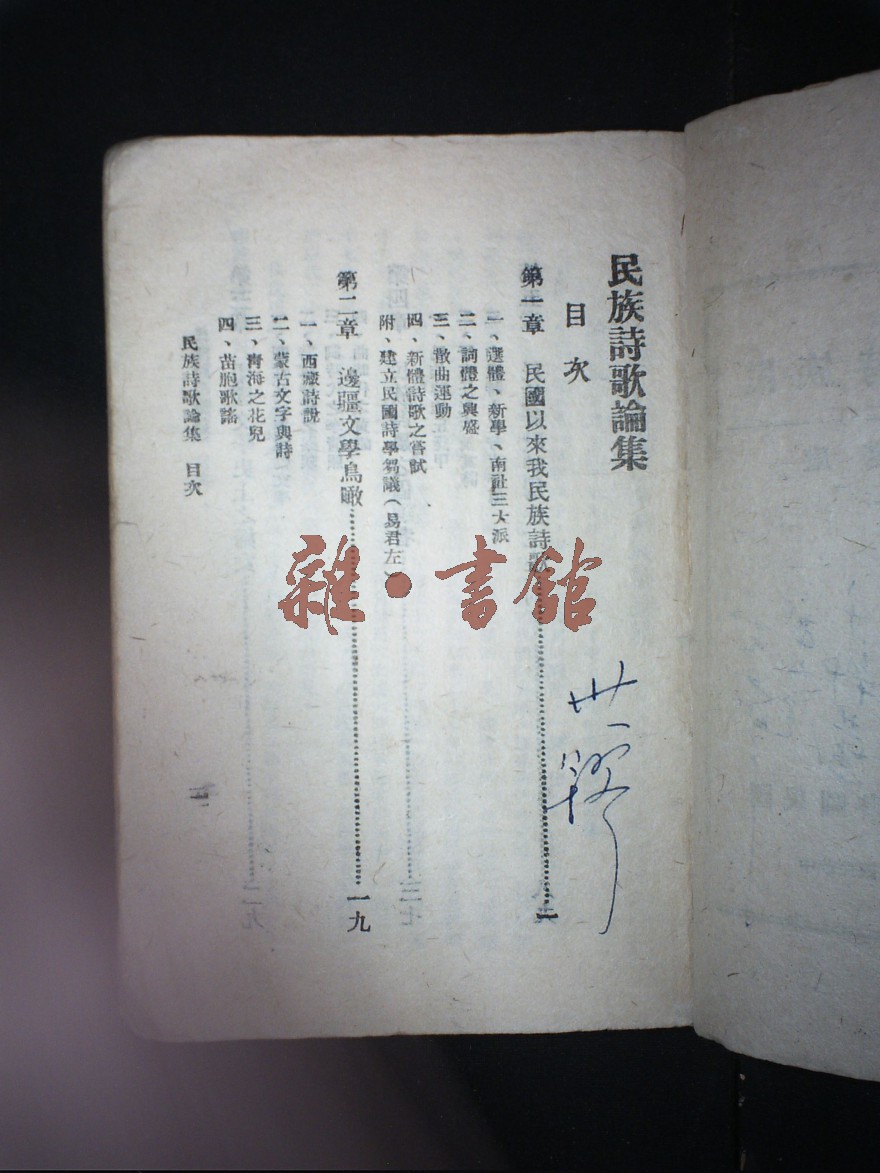 民族詩歌論集
目次
第一章 民國以來我民族詩歌 一
一、選體、新學、南社三大派
二、詞體之興盛
三、散曲運動
四、新體詩歌之嘗試
附、建立民國詩學芻議(易君左)
第二章 邊疆文學鳥瞰 一九
一、西藏詩說
二、蒙古文字與詩
三、青海之花兒
四、苗胞歌謠
民族詩歌論集 目次
一
雜·書館